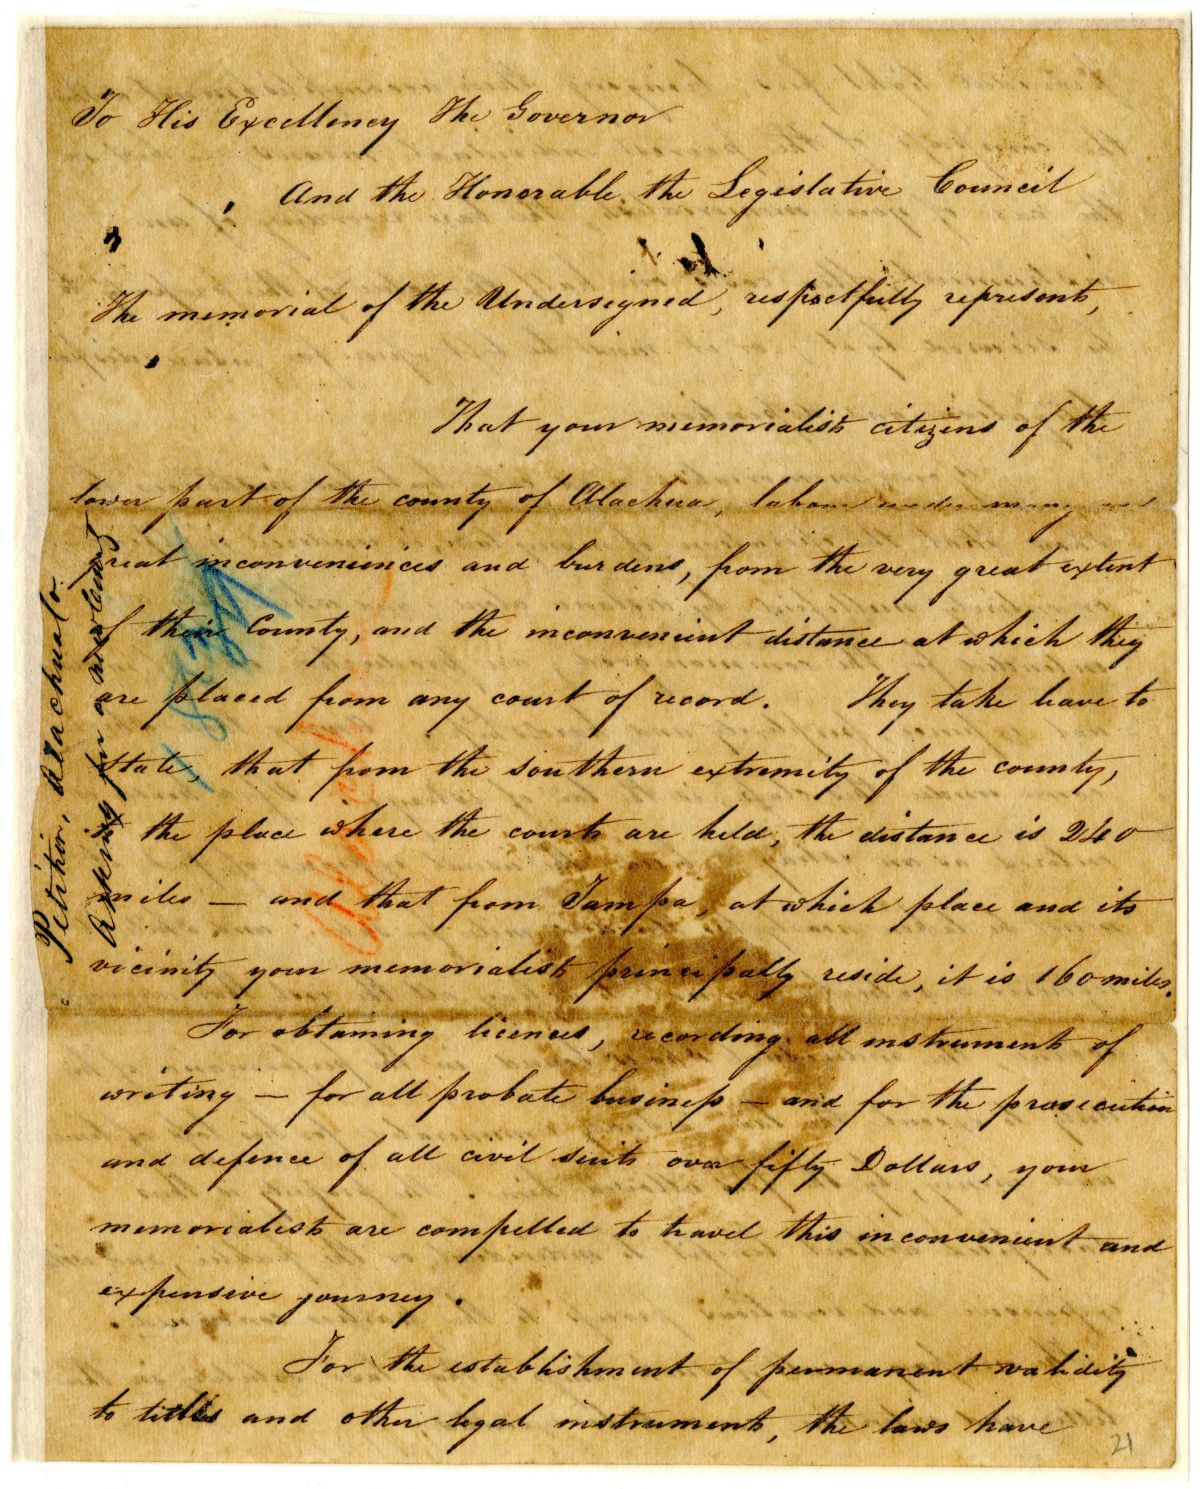 To His Excellency The Governor
And the Honorable the Legislative Council
The memorial of the Undersigned, respectfully represents,
That your memorialists citizens of the
lower part of the county of Alachua, labour under many and
great inconveniences and burdens, from the very great extent
of their County, and the inconvenient distance at which they
are placed from any court of record. They take leave to
state, that from the southern extremity of the county,
to the place where the courts are held, the distance is 240
miles — and that from Tampa, at which place and its
vicinity your memorialists principally reside, it is 160 miles.
For obtaining licences, recording all instruments of
writing — for all probate business — and for the prosecution
and defence of all civil suits over fifty Dollars, your
memorialists are compelled to travel this inconvenient and
expensive journey.
For the establishment of permanent validity
to titles and other legal instruments, the laws have
21
Petition, Alachua Co.
Asking for a new County